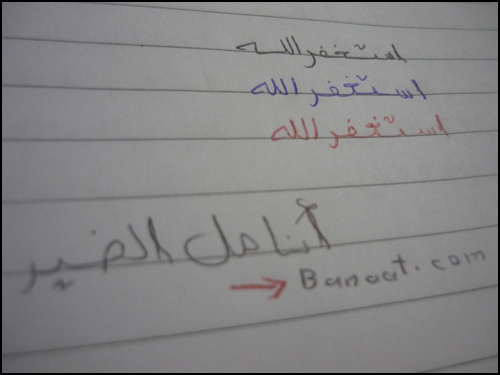 استغفر الله
استغفر الله
استغفر الله
أنامل الخير
→ Banaat.com